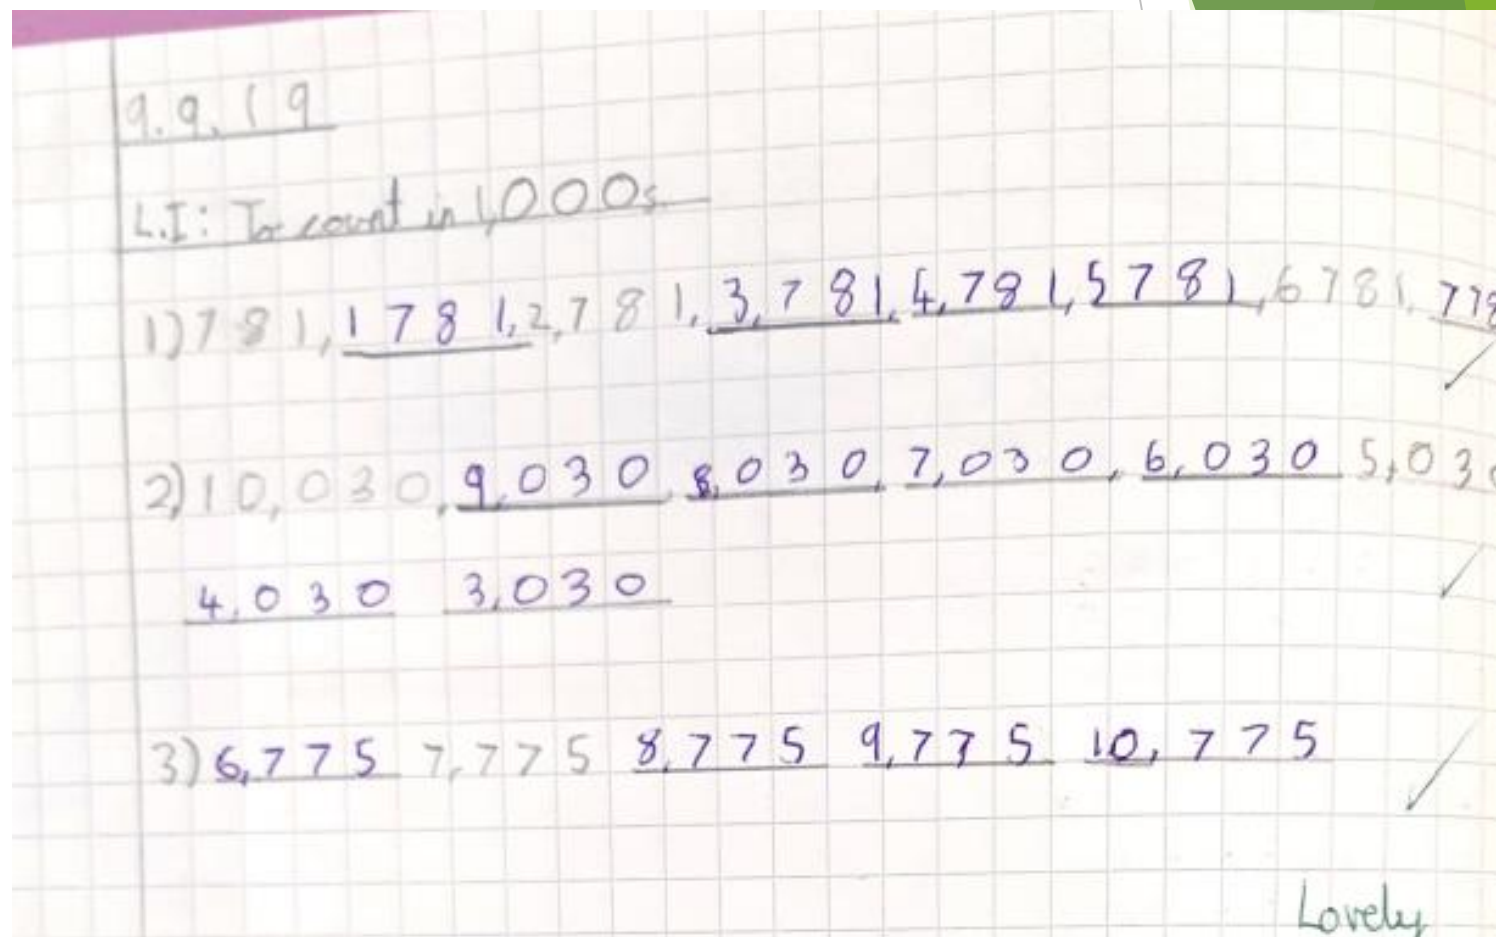 9.9.19
L.I: To count in 1,000s
1) 781, 1781, 2,781, 3,781, 4,781, 5781, 6781, 778
2) 10,030, 9,030, 8,030, 7,030, 6,030 5,030
4,030 3,030
3) 6,775 7,775 8,775 9,775 10,775
Lovely